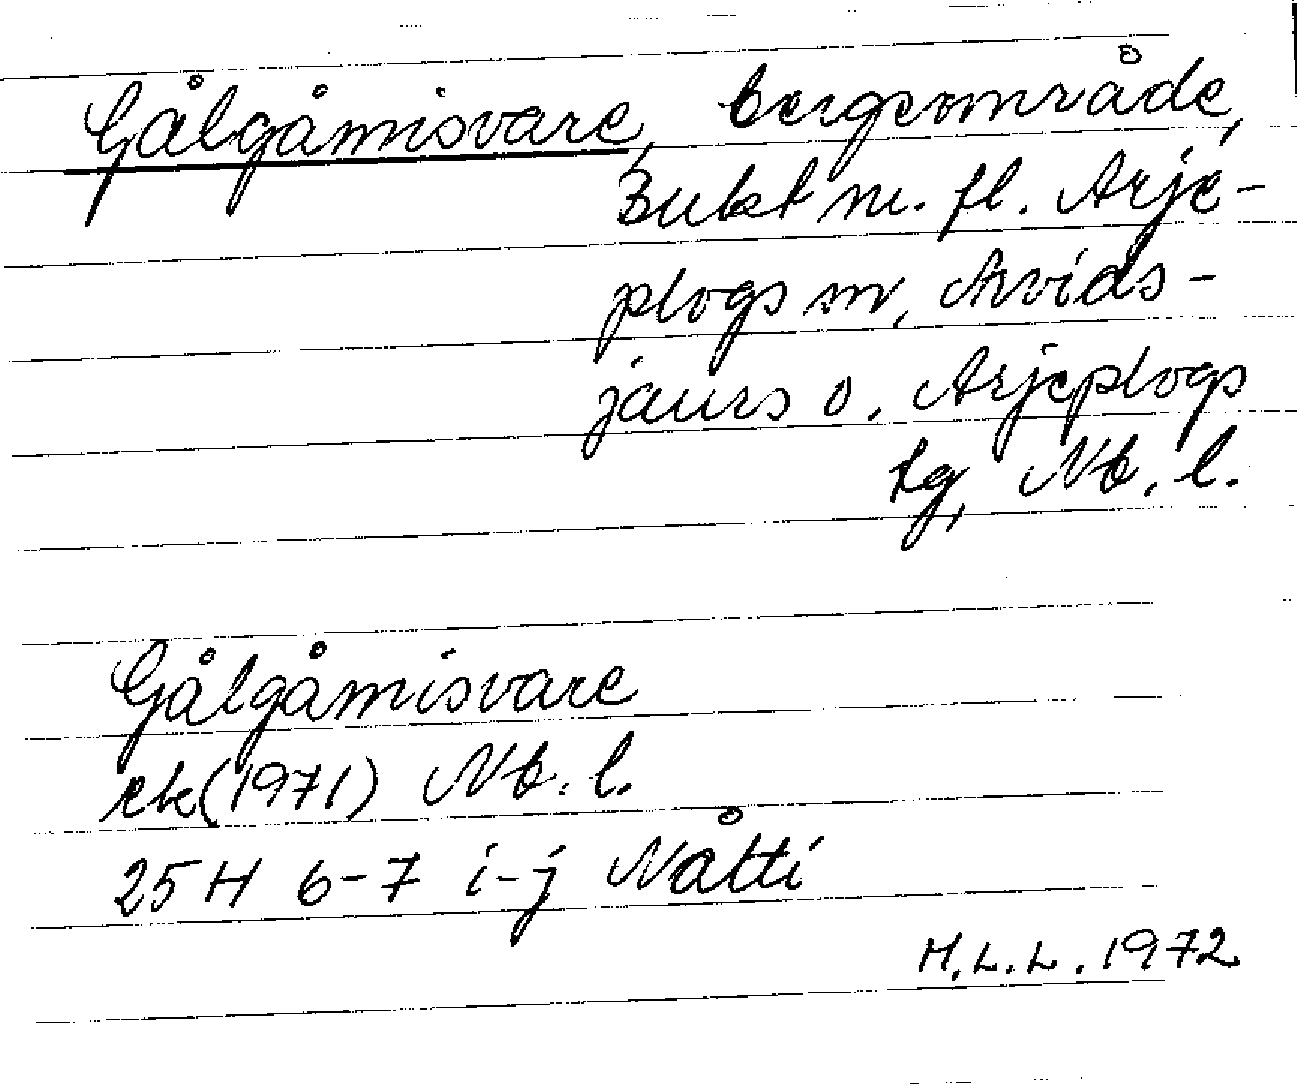 Gålgåmisvare, bergområde,
3 ukt m. fl. Arje-
plogs sn, Arvids-
jaurs o. Arjeplogs
tg, Nb. l.
Gålgåmisvare
ek (1971) Nb. l.
25 H 6-7 i-j Nåtti
H.L.L. 1972